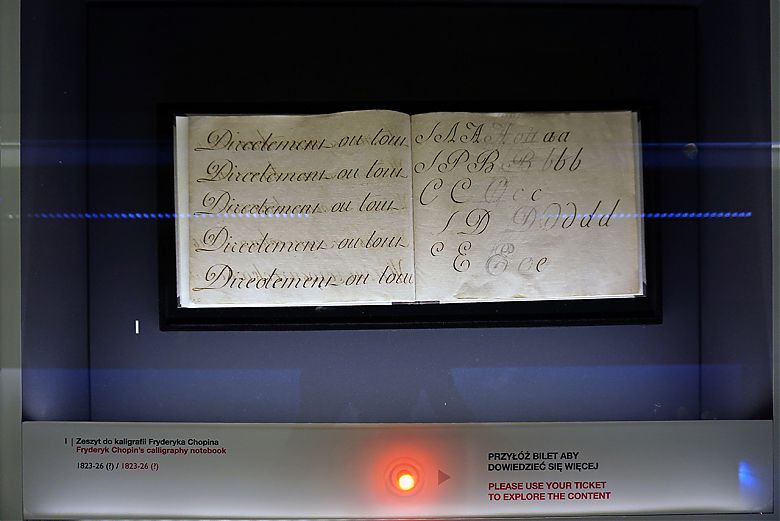 Directement ou tout
Directement ou tout
Directement ou tout
Directement ou tout
Directement ou tout
I A A A a a a a
I P B B B b b b
C C C c c
I D D d d d d
C E e e
I
I | Zeszyt do kaligrafii Fryderyka Chopina
Fryderyk Chopin's calligraphy notebook
1823-26 (?) / 1823-26 (?)
PRZYŁÓŻ BILET ABY
DOWIEDZIEĆ SIĘ WIĘCEJ
PLEASE USE YOUR TICKET
TO EXPLORE THE CONTENT